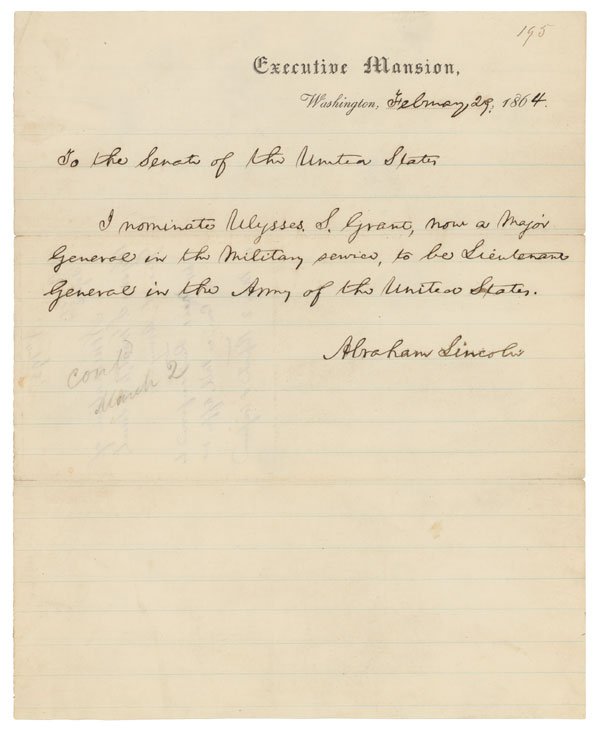 195
Executive Mansion,
Washington, February 29, 1864.
To the Senate of the United States
I nominate Ulysses. S. Grant, now a Major
General in the Military service, to be Lieutenant
General in the Army of the United States.
Abraham Lincoln
Conf
March 2